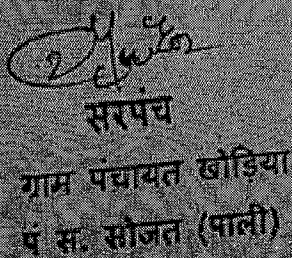 2
सरपंच
ग्राम पंचायत खोड़िया
पं स. सोजत (पाली)